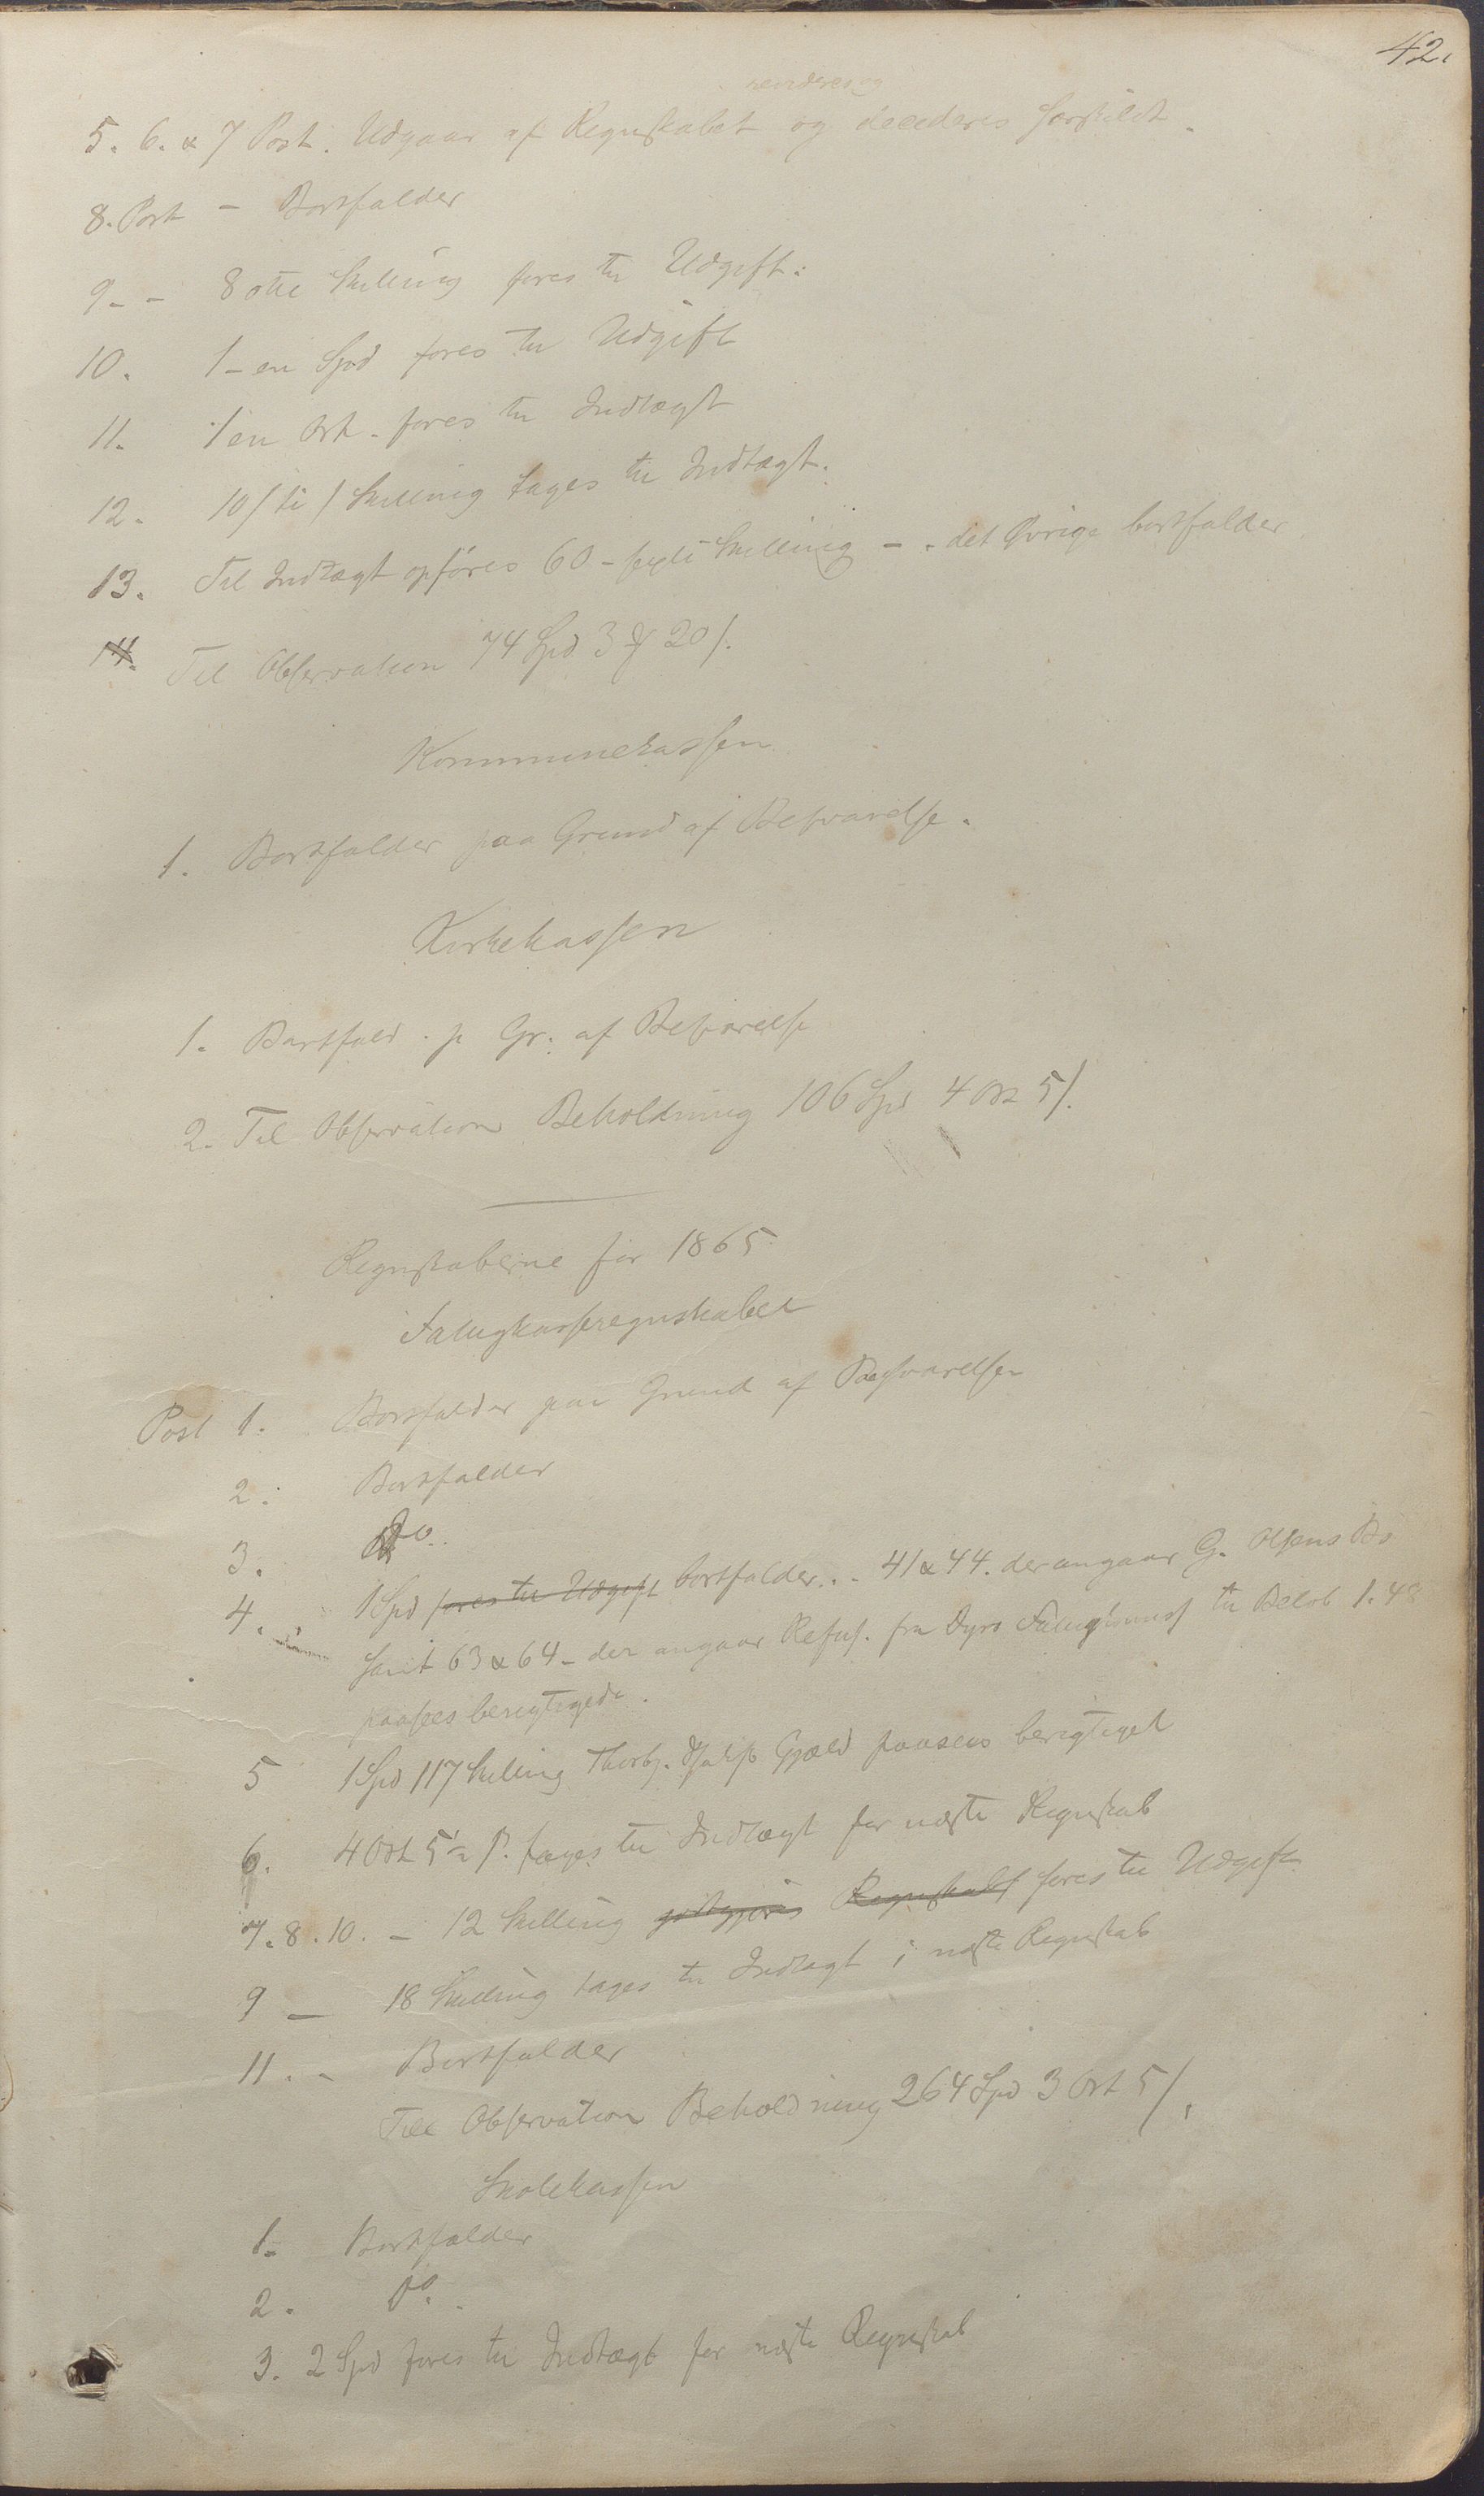 42.
revideres og
5. 6. & 7 Post. Udgaar af Regnskabet og decideres særskildt.
8. Post - Bortfalder
9 - - 8 otte Skilling føres til Udgift.
10. 1 - en Spd føres til Udgift
11. 1 en Ort. føres til Indtægt
12. 10/ti/ Skilling tages til Indtægt.
13. Til Indtægt opføres 60 - sexti Skilling - . det Øvrige bortfalder
14. Til Observation 74 Spd 3 20/.
Kommunekassen
1. Bortfalder paa Grund af Besvarelse.
Kirkekassen
1. Bortfald. p Gr. af Besvarelse
2. Til Observation Beholdning 106 Spd 4 Ort 5/.
Regnskaberne for 1865
Fattigkasseregnskabet
Post 1. Bortfalder paa Grund af Besvarelsen
2. Bortfalder
3. Do.
4. 1 Spd føres til Udgift bortfalder. . - 41 & 44. der angaar G. Olsens Bo
samt 63 & 64 - der angaar Refus. fra Dyrø til Beløb 1. 48
paasees berigtigede.
5 1 Spd 117 Skilling Thorbj. Gjæld paasees berigtiget
6. 4 Ort 5 tages til Indtægt for næste Regnskab
7. 8. 10. - 12 Skilling godtgjøres Regnskabet føres til Udgift.
9 - 18 Skilling tages til Indtægt i næste Regnskab
11. - Bortfalder
Till Observation Beholdning 264 Spd 3 Ort 5/.
Skolekassen
1. Bortfalder
2. Do.
3. 2 Spd føres til Indtægt for næste Regnskab